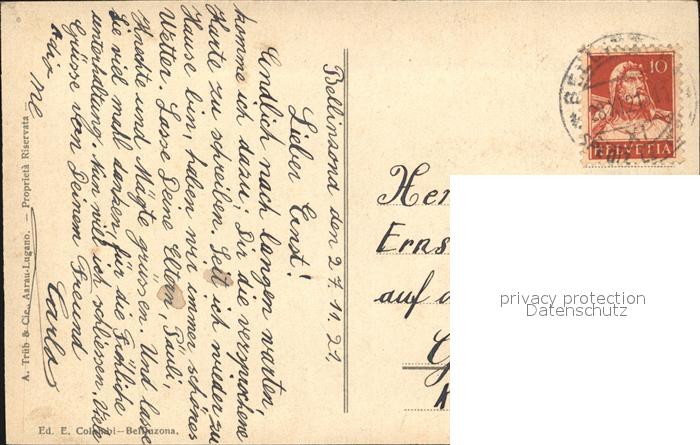 Bellinzona den 27.11.21.
Lieber Ernst!
Endlich nach langem warten,
komme ich dazu, Dir die versprochene
Karte zu schreiben. Seit ich wieder zu
Hause bin, haben wir immer schönes
Wetter. Lasse Deine Eltern, Pauli,
Knechte und Mägte grüssen. Und lasse
Sie viel mall danken, für die Fröhliche
unterhaltung. Nun will ich schliessen. Viele
Grüsse von Deinem Freund
Carlo
A. Trüb & Cie., Aarau-Lugano. — Proprietà Riservata —
Ed. E. Colombi—Bellinzona.
10
HELVETIA
Her
Erns
auf d
privacy protection
Datenschutz